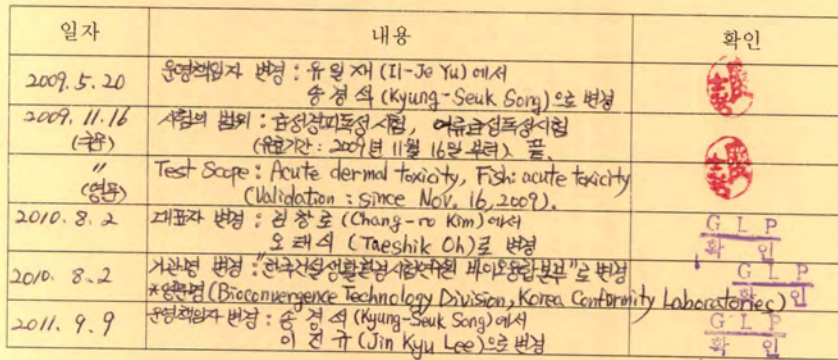 일자 내용 확인
2009.5.20 운영책임자 변경 : 유일재 (Il-Je Yu) 에서
송경석 (Kyung-Seuk Song)으로 변경
2009.11.16 시험의 범위 : 급성경피독성시험, 어류급성독성시험
(국문) (유효기간 : 2009년 11월 16일 부터). 끝.
" Test Scope : Acute dermal toxicity, Fish: acute toxicity
(영문) (Validation : since Nov. 16, 2009).
2010. 8. 2 대표자 변경 : 김창로 (Chang-ro Kim)에서
GLP
오태식 (Taeshik Oh)로 변경
확인
2010. 8. 2 기관명 변경 : "한국건설생활환경시험연구원 바이오융합본부"로 변경
GLP
*영문명 (Bioconvergence Technology Division, Korea Conformity Laboratories)
확인
2011. 9. 9 운영책임자 변경 : 송경석 (Kyung-Seuk Song)에서
GLP
이진규 (Jin Kyu Lee)으로 변경
확인